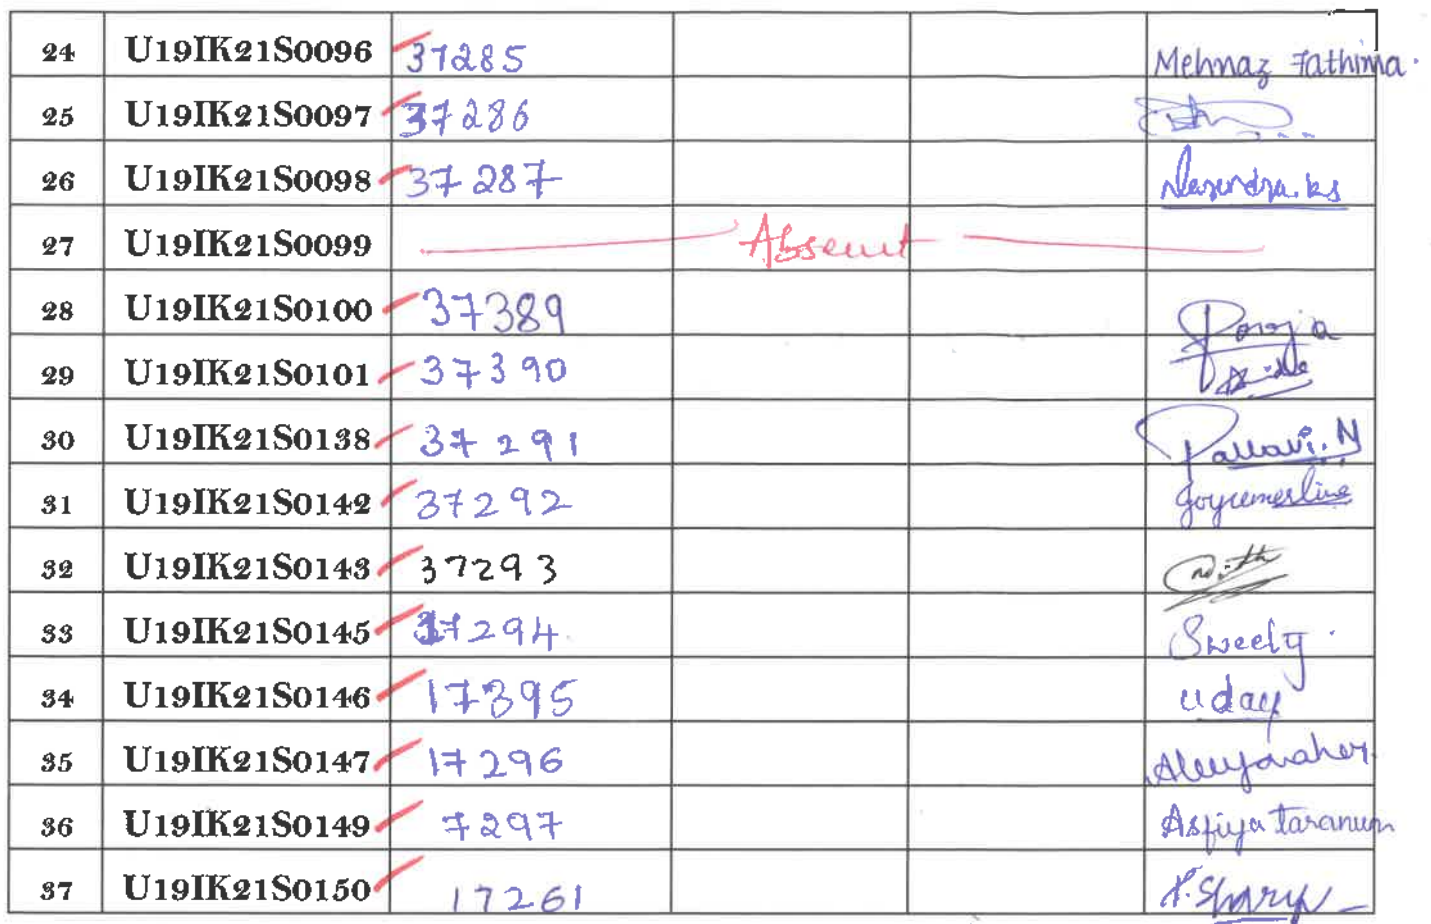 24 U19IK21S0096 37285 Mehnaz Fathima.
25 U19IK21S0097 37286
26 U19IK21S0098 37287 Narendra.ks
27 U19IK21S0099 Absent
28 U19IK21S0100 37389 Pooja
29 U19IK21S0101 37390
30 U19IK21S0138 37291 Pallavi.N
31 U19IK21S0142 37292 Joycemerline
32 U19IK21S0143 37293
33 U19IK21S0145 37294 Sweety.
34 U19IK21S0146 17395 Uday
35 U19IK21S0147 17296
36 U19IK21S0149 7297 Asfiya taranum
37 U19IK21S0150 17261